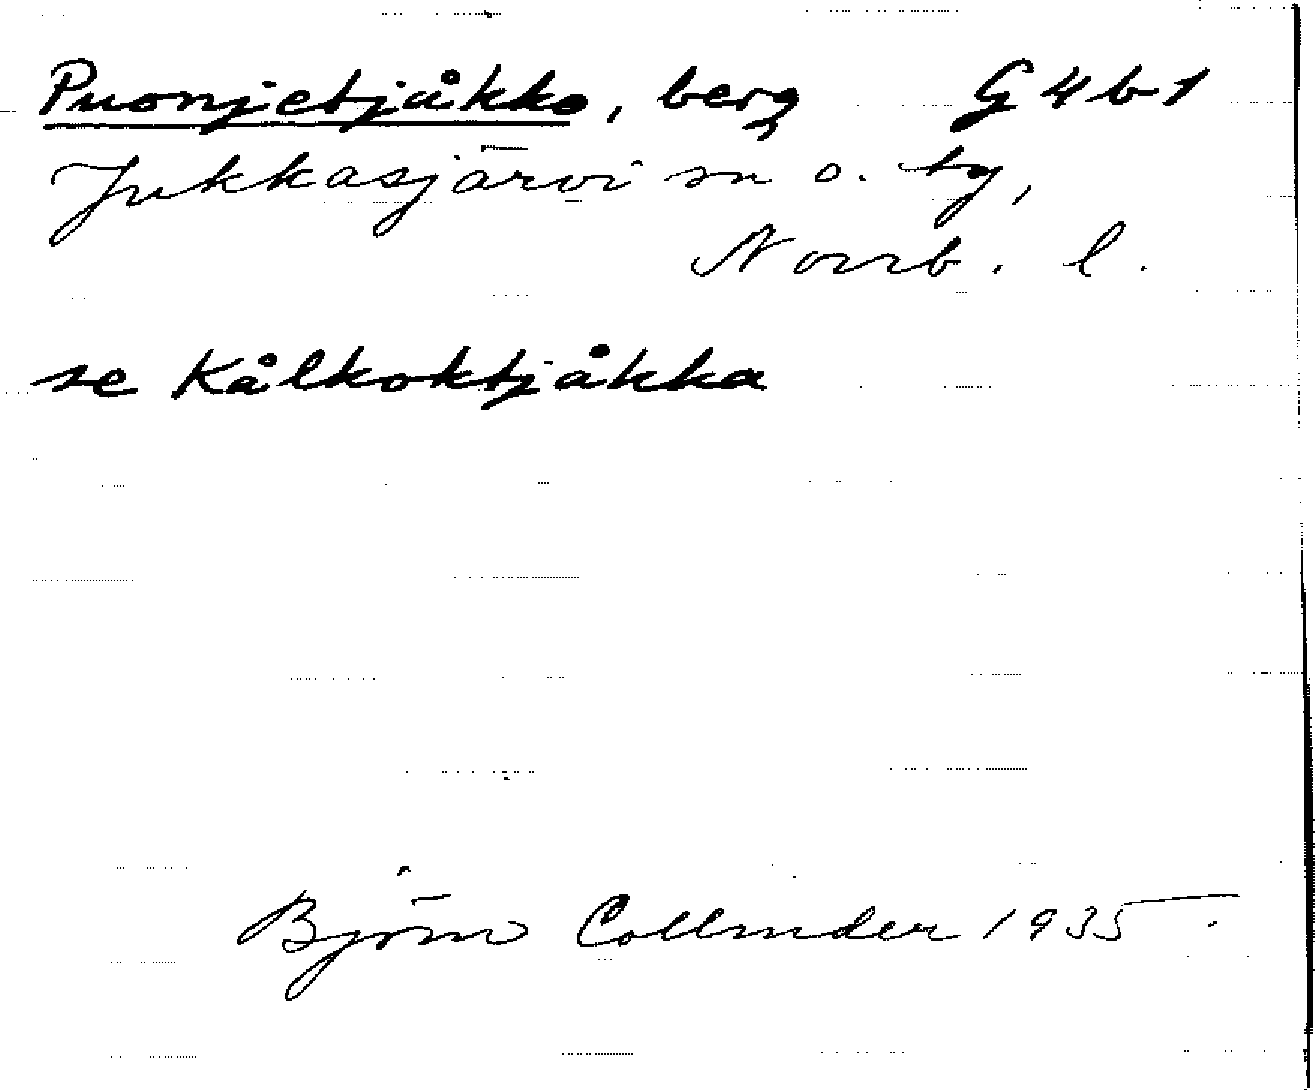 Puonjetjåkko, berg G4b1
Jukkasjärvi sn o. tg,
Norrb. l.
se Kålkoktjåkka
Björn Collinder 1935